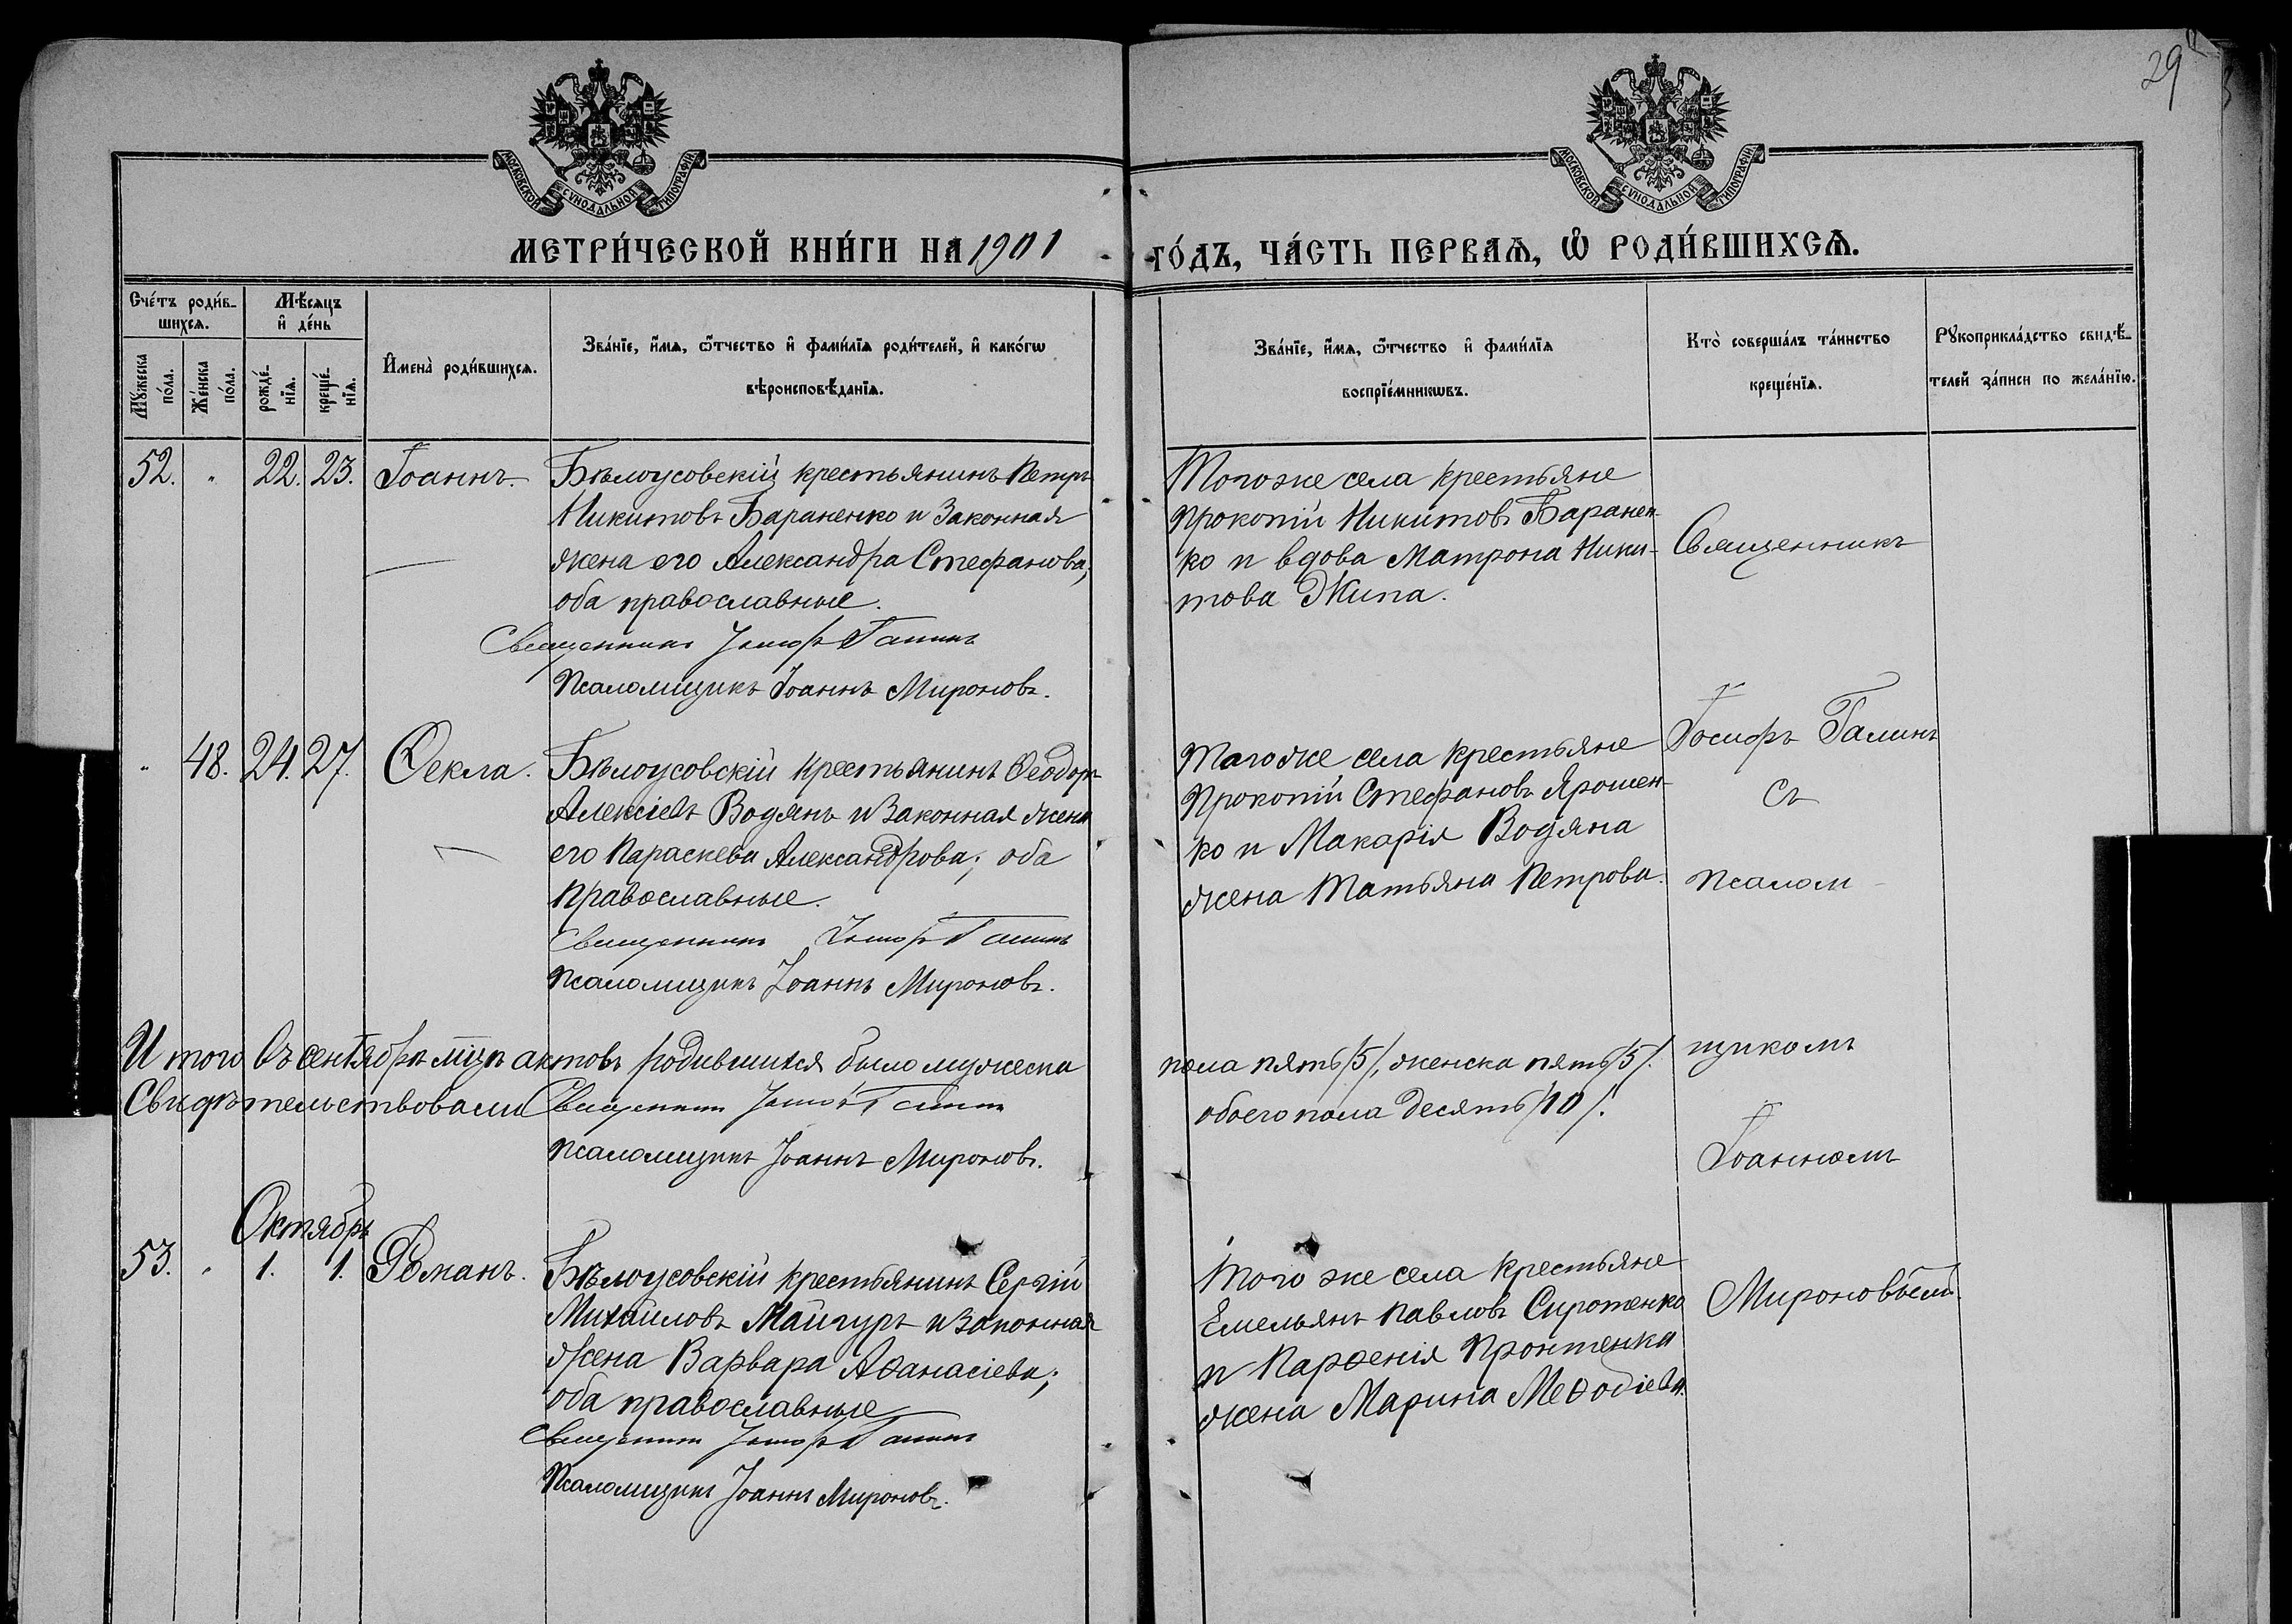 29
МОСКОВСКОЙ СУНОДАЛЬНОЙ ТИПОГРАФІИ
МОСКОВСКОЙ СУНОДАЛЬНОЙ ТИПОГРАФІИ
МЕТРИ́ЧЕСКОЙ КНИ́ГИ НА 1901
ГО́ДЪ, ЧА́СТЬ ПЕРВАѦ, Ѡ҆ РОДИ́ВШИХСѦ.
Сче́тъ роди́в-
шихсѧ.
Мѣ́сѧцъ
и҆ де́нь
Мꙋ́жеска
по́ла.
Же́нска
по́ла.
рожде́-
нїѧ.
креще́-
нїѧ.
И҆мена̀ роди́вшихсѧ.
Зва́нїе, и҆́мѧ, ѻ҆́тчество и҆ фами́лїѧ роди́телей, и҆ како́гѡ
вѣроисповѣ́данїѧ.
Зва́нїе, и҆́мѧ, ѻ҆́тчество и҆ фами́лїѧ
воспрїе́мникѡвъ.
Кто̀ соверша́лъ та́инство
креще́нїѧ.
Рꙋкоприкла́дство свидѣ́-
телей за́писи по жела́нїю.
52. " 22. 23. Іоаннъ.
Бѣлоусовскій крестьянинъ Петръ
Никитовъ Бараненко и законная
жена его Александра Стефанова;
оба православные.
Священникъ Іосифъ Галинъ
Псаломщикъ Іоаннъ Мироновъ.
Того же села крестьяне
Прокопій Никитовъ Баранен-
ко и вдова Матрона Ники-
това Жила.
Священникъ
" 48. 24. 27. Ѳекла.
Бѣлоусовскій крестьянинъ Ѳеодоръ
Алексіевъ Водянъ и законная жена
его Параскева Александрова; оба
православные.
Священникъ Іосифъ Галинъ
Псаломщикъ Іоаннъ Мироновъ.
Того же села крестьяне
Прокопій Стефановъ Ярошен-
ко и Макарія Водяна
жена Татьяна Петрова.
Іосифъ Галинъ
съ
псалом-
Итого въ сентябрѣ мцѣ актовъ родившихся было мужеска
пола пять /5/, женска пять /5/.
щикомъ
Свидѣтельствовали Священникъ Іосифъ Галинъ
обоего пола десять /10/.
Псаломщикъ Іоаннъ Мироновъ.
Іоанномъ
Октябрь
53. " 1. 1. Романъ.
Бѣлоусовскій крестьянинъ Сергій
Михайловъ Майгуръ и законная
жена Варвара Аѳанасіева;
оба православные
Священникъ Іосифъ Галинъ
Псаломщикъ Іоаннъ Мироновъ.
Того же села крестьяне
Емельянъ Павловъ Сиротенко
и Парѳенія Пронтенка
жена Марина Меѳодіева.
Мироновымъ.